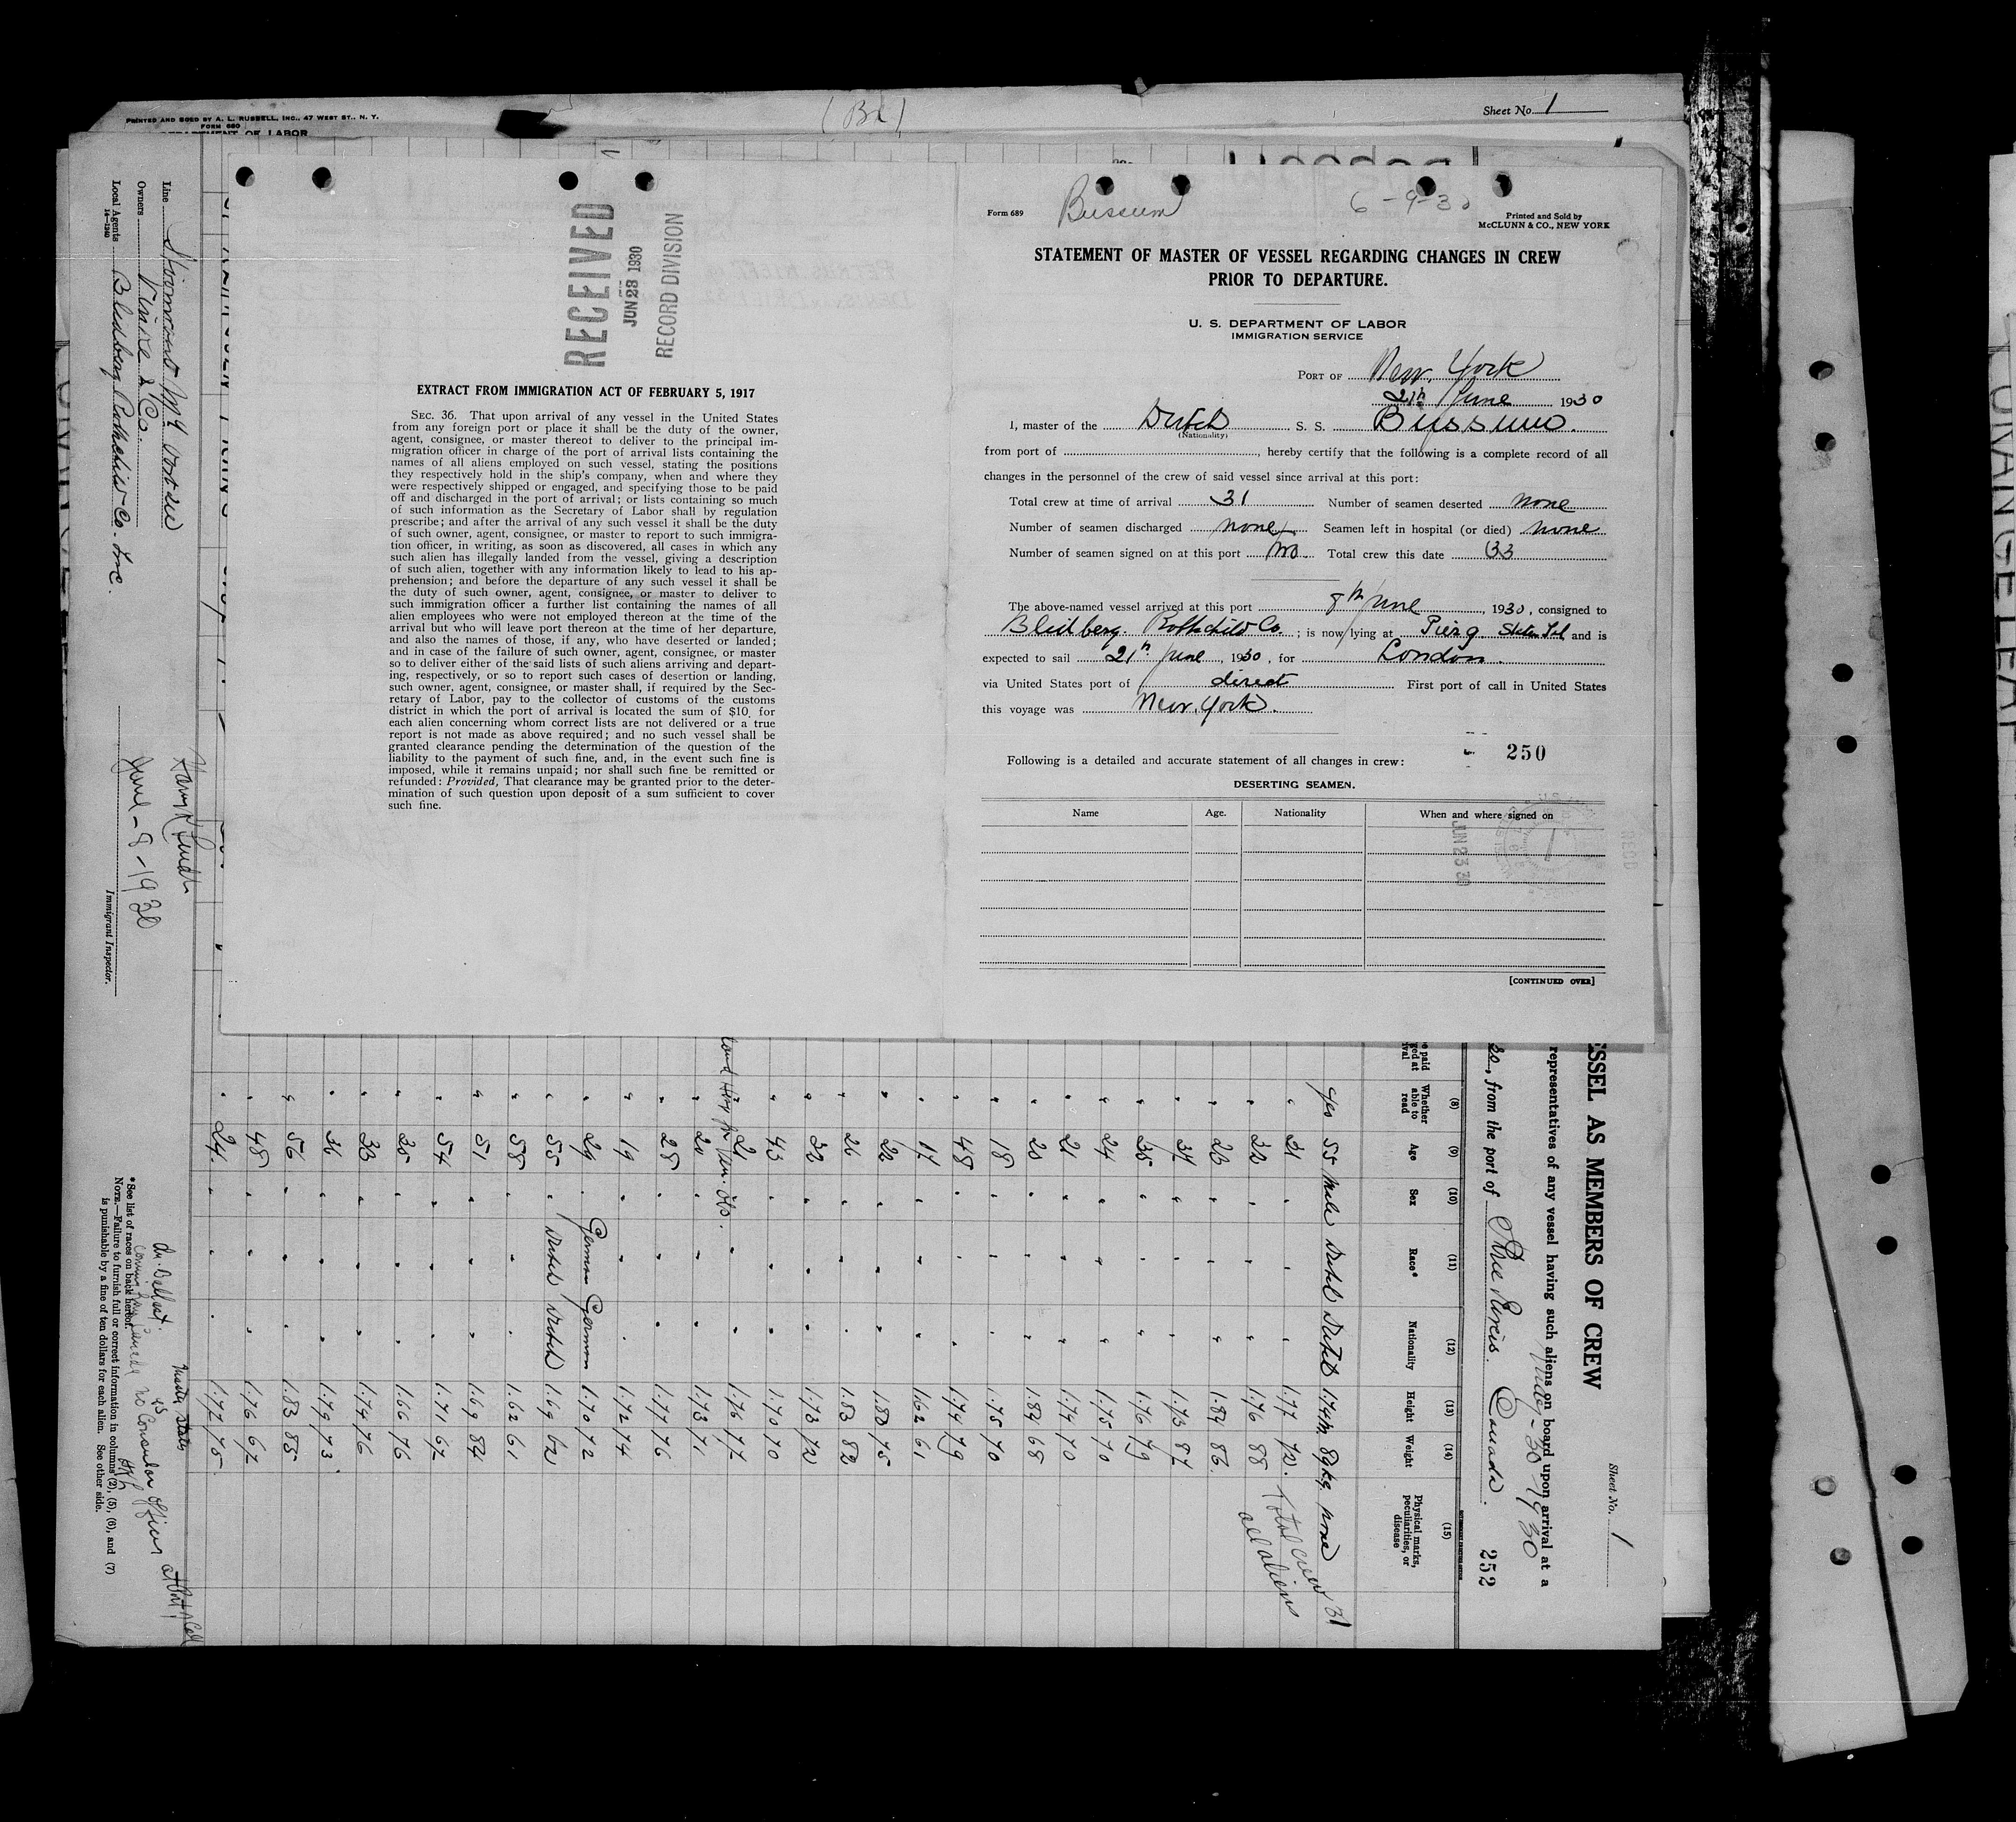 PRINTED AND SOLD BY A. L. RUSSELL, INC., 47 WEST ST., N. Y.
FORM 680
DEPARTMENT OF LABOR
Sheet No. 1
RECEIVED
JUN 28 1930
RECORD DIVISION
EXTRACT FROM IMMIGRATION ACT OF FEBRUARY 5, 1917
SEC. 36. That upon arrival of any vessel in the United States
from any foreign port or place it shall be the duty of the owner,
agent, consignee, or master thereof to deliver to the principal im-
migration officer in charge of the port of arrival lists containing the
names of all aliens employed on such vessel, stating the positions
they respectively hold in the ship's company, when and where they
were respectively shipped or engaged, and specifying those to be paid
off and discharged in the port of arrival; or lists containing so much
of such information as the Secretary of Labor shall by regulation
prescribe; and after the arrival of any such vessel it shall be the duty
of such owner, agent, consignee, or master to report to such immigra-
tion officer, in writing, as soon as discovered, all cases in which any
such alien has illegally landed from the vessel, giving a description
of such alien, together with any information likely to lead to his ap-
prehension; and before the departure of any such vessel it shall be
the duty of such owner, agent, consignee, or master to deliver to
such immigration officer a further list containing the names of all
alien employees who were not employed thereon at the time of the
arrival but who will leave port thereon at the time of her departure,
and also the names of those, if any, who have deserted or landed;
and in case of the failure of such owner, agent, consignee, or master
so to deliver either of the said lists of such aliens arriving and depart-
ing, respectively, or so to report such cases of desertion or landing,
such owner, agent, consignee, or master shall, if required by the Sec-
retary of Labor, pay to the collector of customs of the customs
district in which the port of arrival is located the sum of $10 for
each alien concerning whom correct lists are not delivered or a true
report is not made as above required; and no such vessel shall be
granted clearance pending the determination of the question of the
liability to the payment of such fine, and, in the event such fine is
imposed, while it remains unpaid; nor shall such fine be remitted or
refunded: Provided, That clearance may be granted prior to the deter-
mination of such question upon deposit of a sum sufficient to cover
such fine.
Form 689
Bussum
6-9-30
Printed and Sold by
McCLUNN & CO., NEW YORK
STATEMENT OF MASTER OF VESSEL REGARDING CHANGES IN CREW
PRIOR TO DEPARTURE.
U. S. DEPARTMENT OF LABOR
IMMIGRATION SERVICE
PORT OF New York
21th June 1930
I, master of the Dutch S. S. Bussum.
(Nationality)
from port of , hereby certify that the following is a complete record of all
changes in the personnel of the crew of said vessel since arrival at this port:
Total crew at time of arrival 31 Number of seamen deserted none
Number of seamen discharged none Seamen left in hospital (or died) none
Number of seamen signed on at this port Total crew this date 33
The above-named vessel arrived at this port 8th June, 1930, consigned to
Bleidberg Rothschild Co. ; is now lying at Pier 9 Staten Isl and is
expected to sail 21th June, 1930, for London.
via United States port of direct First port of call in United States
this voyage was New York.
Following is a detailed and accurate statement of all changes in crew: 250
DESERTING SEAMEN.
Name Age. Nationality When and where signed on
JUN 23 30
[CONTINUED OVER]
Line
Owners Vinke & Co.
Local Agents Bleidberg Rothschild Co. Inc.
14-1240
June-8-1930
Immigrant Inspector.
ESSEL AS MEMBERS OF CREW
Sheet No. 1
representatives of any vessel having such aliens on board upon arrival at a
May-30-1930
30, from the port of Canada. 252
(8) (9) (10) (11) (12) (13) (14) (15)
Whether able to read Age Sex Race* Nationality Height Weight Physical marks, peculiarities, or disease
yes 55 male Dutch Dutch 1.74m 89kg none
" 31 " " " 1.77 72. Total crew 31
" 32 " " " 1.76 88 all aliens
" 23 " " " 1.84 86.
" 34 " " " 1.73 87
" 35 " " " 1.76 79
" 24 " " " 1.75 70
" 21 " " " 1.74 70
" 20 " " " 1.84 68
" 18 " " " 1.75 70
" 48 " " " 1.74 79
" 17 " " " 1.62 61
" 20 " " " 1.80 75
" 26 " " " 1.83 82
" 32 " " " 1.73 72
" 43 " " " 1.70 70
21 " " " 1.76 77
" 20 " " " 1.73 71
" 28 " " " 1.77 76
" 19 " " " 1.72 74
" 29 " German German 1.70 72
" 55 " Dutch Dutch 1.69 62
" 58 " " " 1.62 61
" 51 " " " 1.69 84
" 54 " " " 1.71 67
" 35 " " " 1.66 76
" 33 " " " 1.74 76
" 36 " " " 1.79 73
" 56 " " " 1.83 85
" 48 " " " 1.76 67
" 24 " " " 1.77 75
*See list of races on back hereof.
NOTE.—Failure to furnish full or correct information in columns (2), (5), (6), and (7)
is punishable by a fine of ten dollars for each alien. See other side.
no Consular officer at